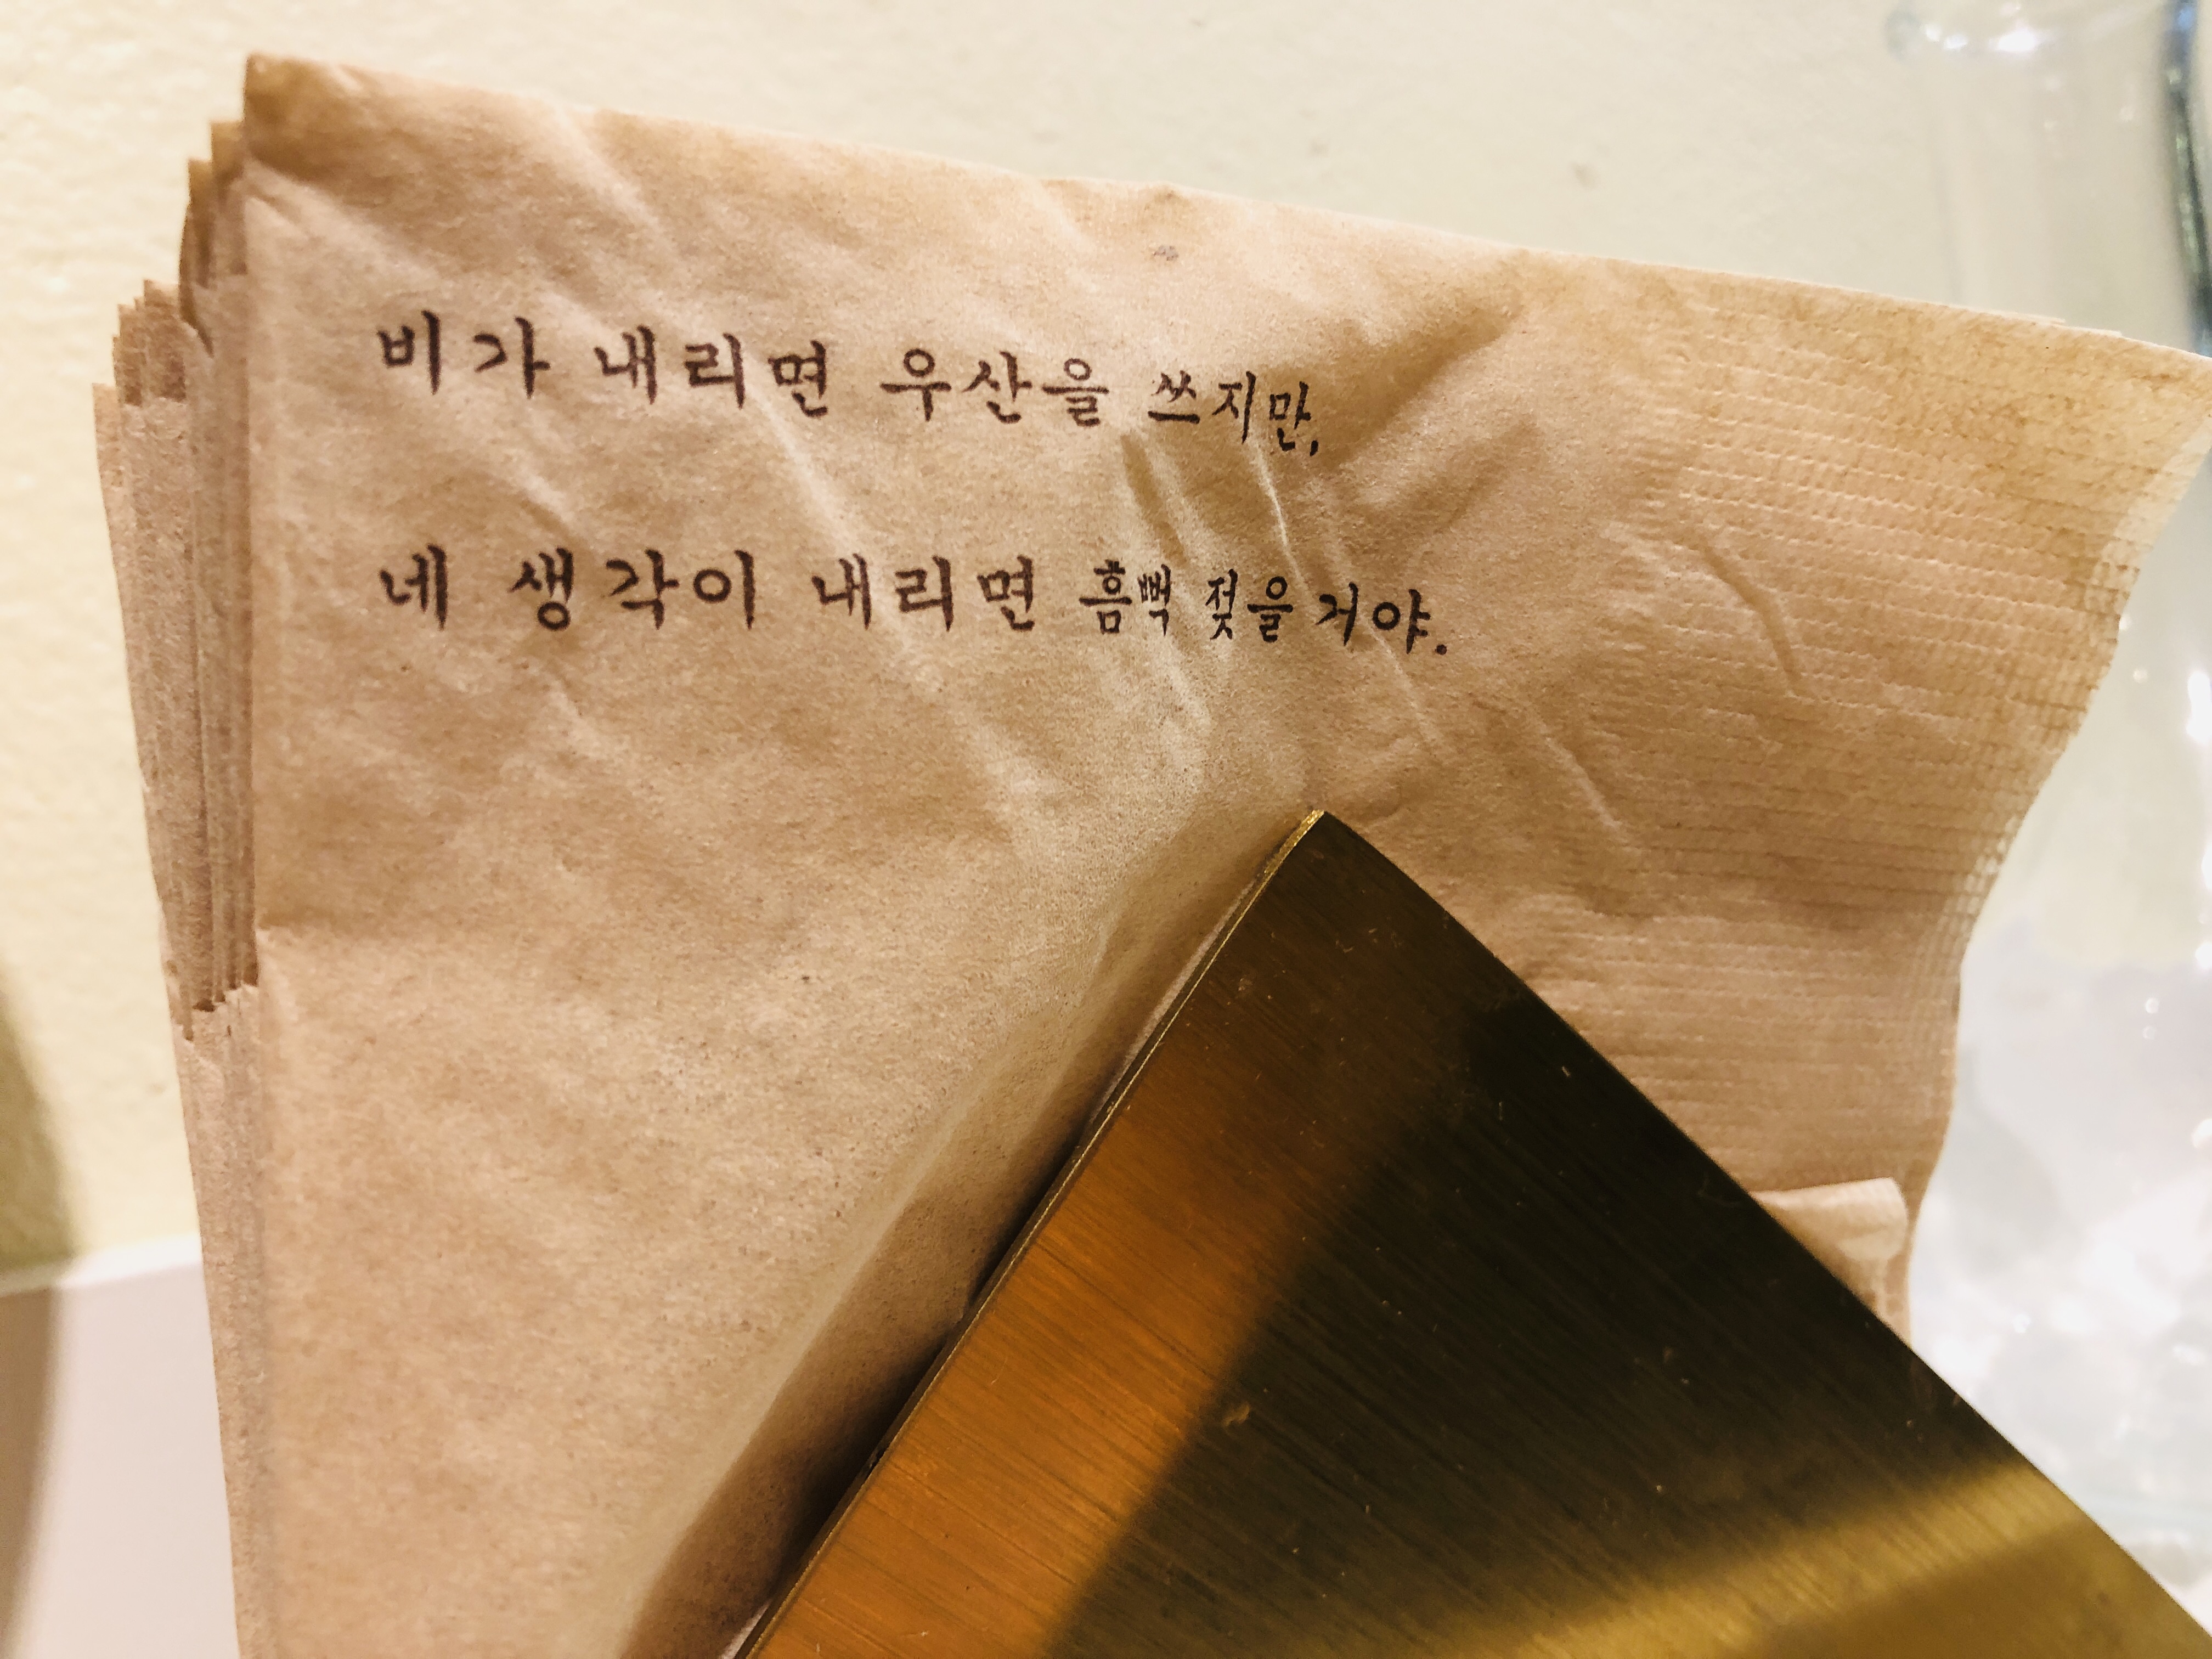 비가 내리면 우산을 쓰지만,
네 생각이 내리면 흠뻑 젖을 거야.